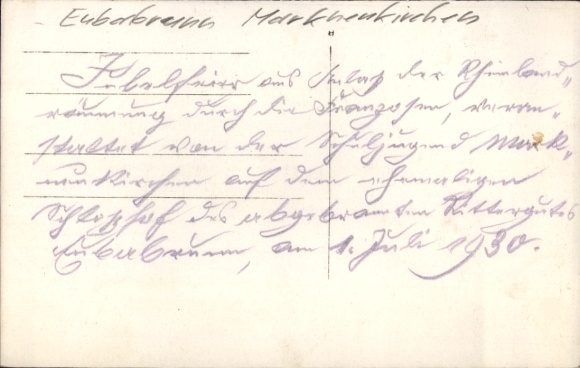 Eubabrunn Markneukirchen
Jubelfeier aus Anlaß der Rheinland-
räumung durch die Franzosen, veran-
staltet von der Schuljugend Mark-
neukirchen auf dem ehemaligen
Schloßhof des abgebrannten Rittergutes
Eubabrunn, am 1. Juli 1930.